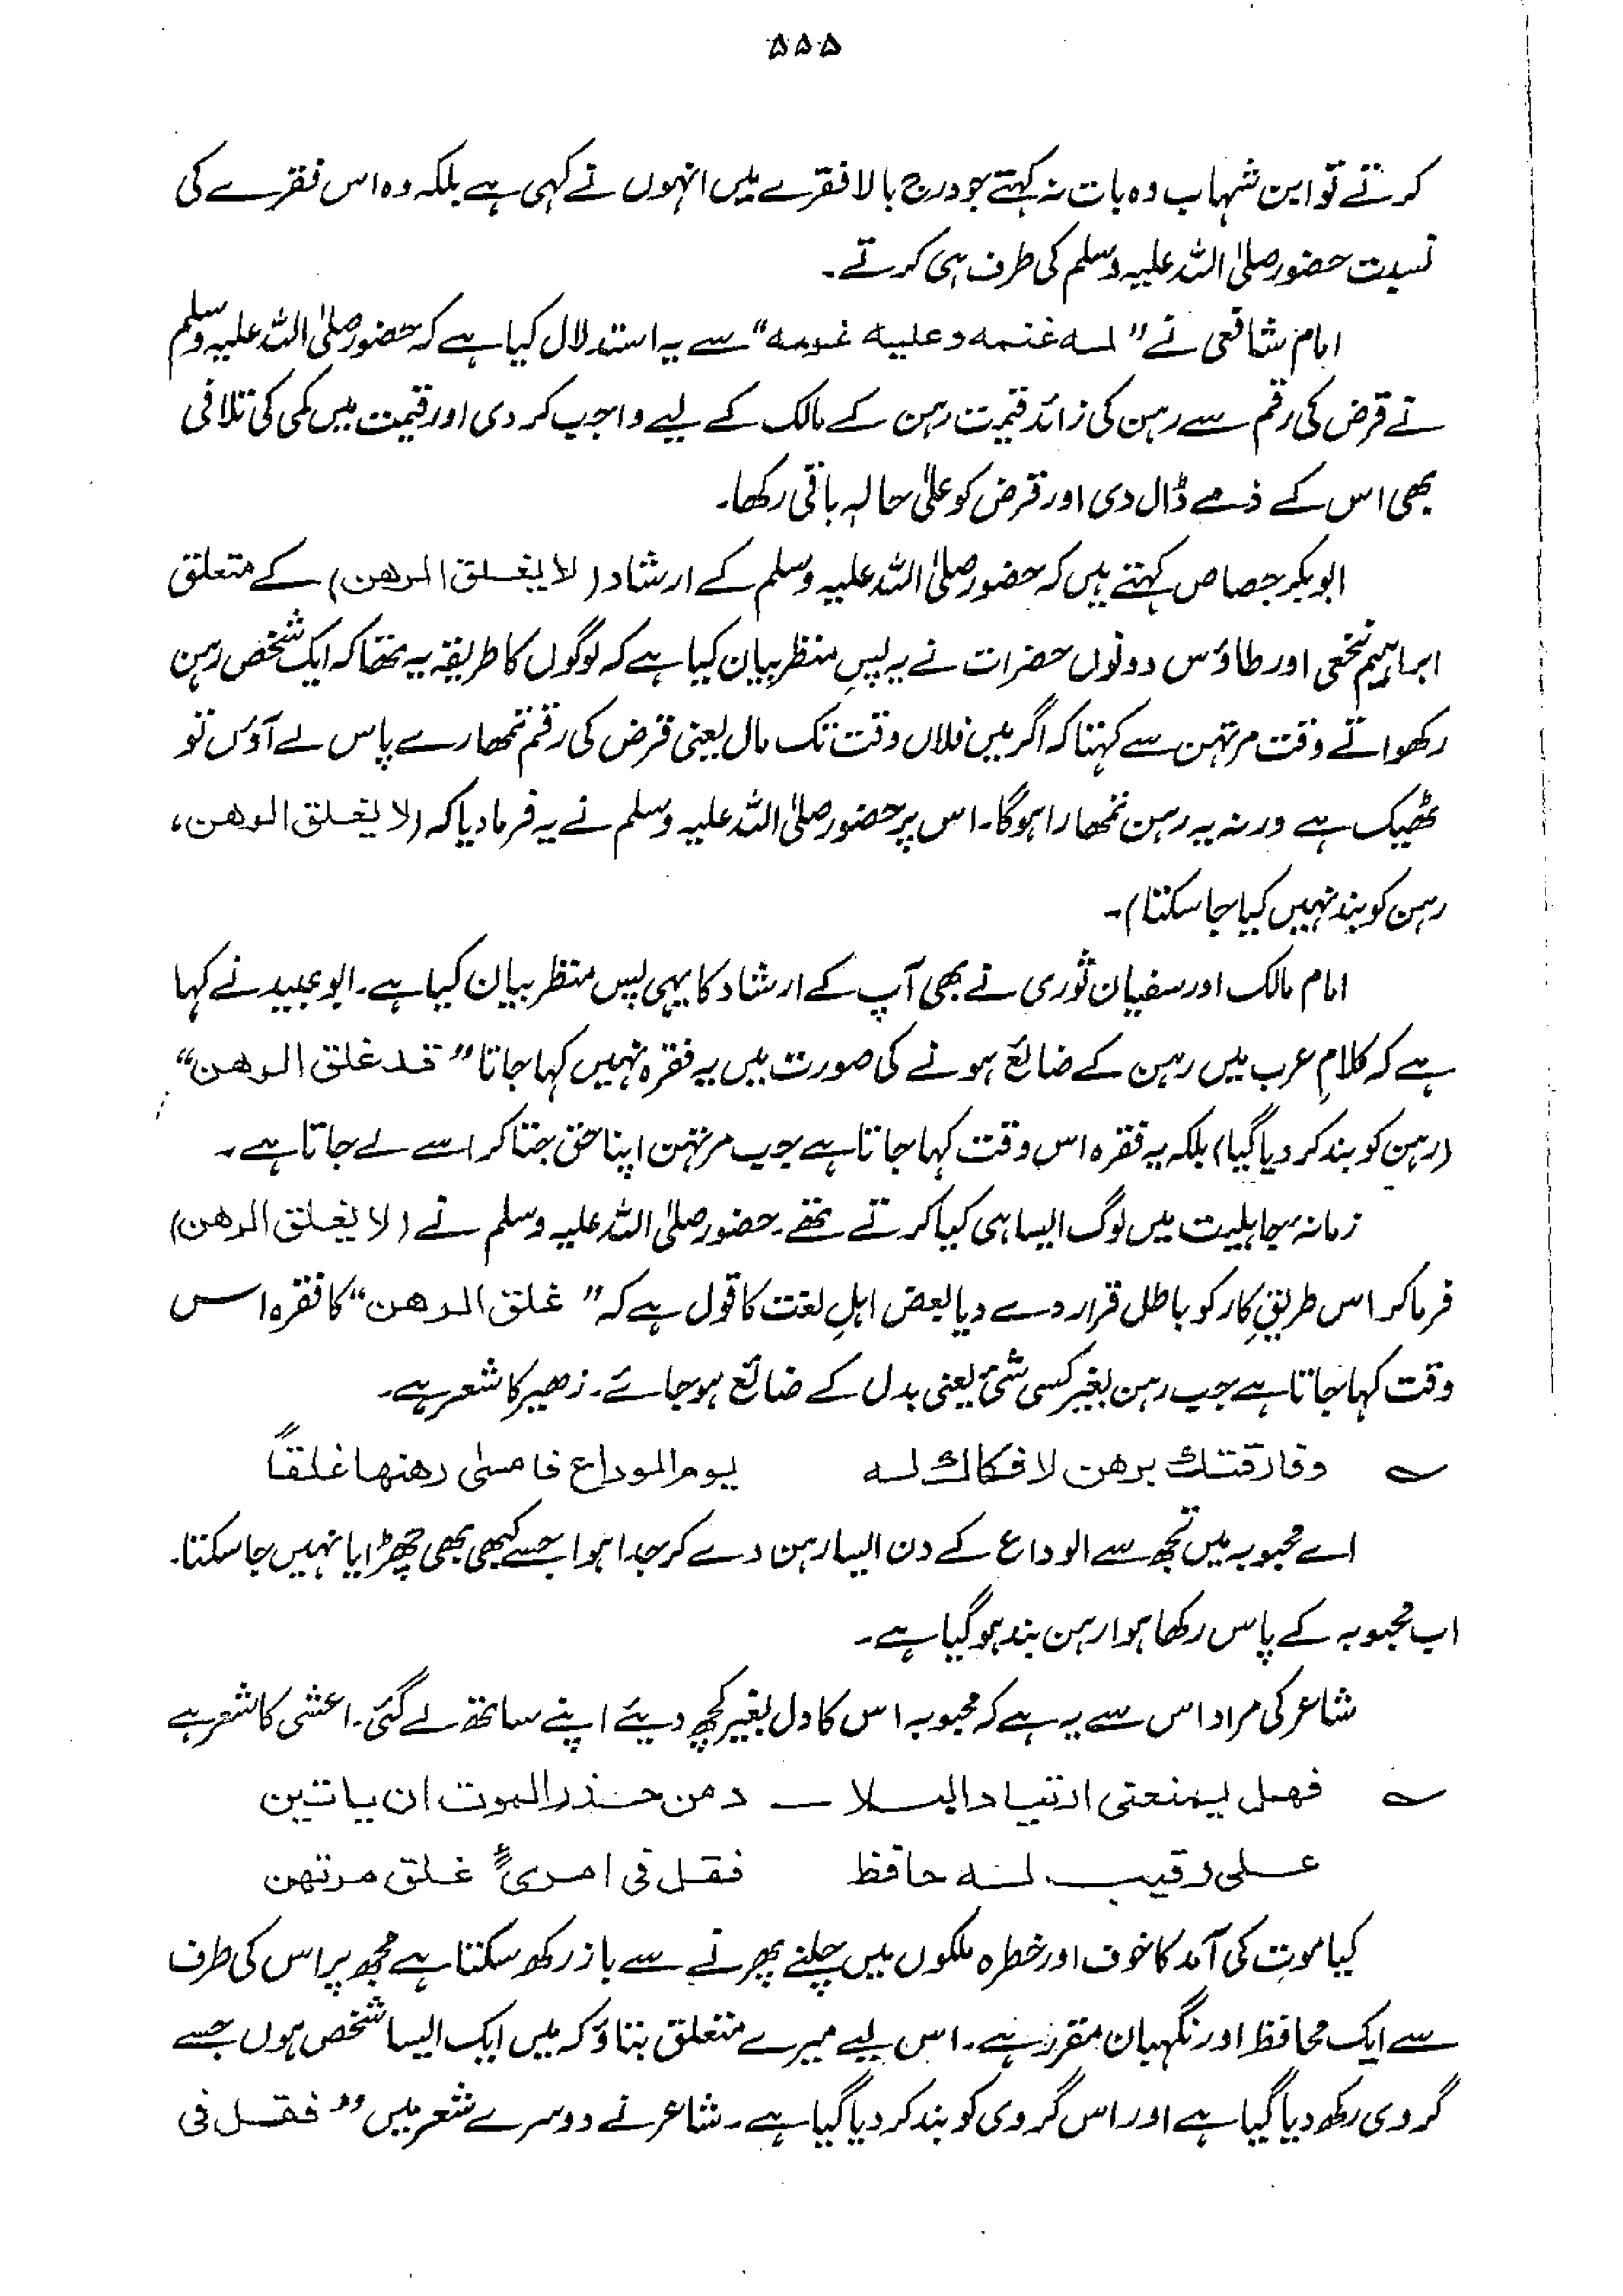 ۵۵۵
کرتے تو ابن شہاب وہ بات نہ کہتے جو درج بالا فقرے میں انہوں نے کہی ہے بلکہ وہ اس فقرے کی
نسبت حضور صلی اللہ علیہ وسلم کی طرف ہی کرتے۔
امام شافعی نے "لہ غنمہ وعلیہ غرمہ" سے یہ استدلال کیا ہے کہ حضور صلی اللہ علیہ وسلم
نے قرض کی رقم سے رہن کی زائد قیمت رہن کے مالک کے لیے واجب کر دی اور قیمت میں کمی کی تلافی
بھی اس کے ذمے ڈال دی اور قرض کو علیٰ حالہ باقی رکھا۔
ابوبکر جصاص کہتے ہیں کہ حضور صلی اللہ علیہ وسلم کے ارشاد (لا یغلق الرھن) کے متعلق
ابراہیم نخعی اور طاؤس دونوں حضرات نے یہ پسِ منظر بیان کیا ہے کہ لوگوں کا طریقہ یہ تھا کہ ایک شخص رہن
رکھواتے وقت مرتہن سے کہتا کہ اگر میں فلاں وقت تک مال یعنی قرض کی رقم تمھارے پاس لے آؤں تو
ٹھیک ہے ورنہ یہ رہن تمھارا ہوگا۔ اس پر حضور صلی اللہ علیہ وسلم نے یہ فرما دیا کہ (لا یغلق الرھن،
رہن کو بند نہیں کیا جا سکتا)۔
امام مالک اور سفیان ثوری نے بھی آپ کے ارشاد کا یہی پس منظر بیان کیا ہے۔ ابوعبید نے کہا
ہے کہ کلامِ عرب میں رہن کے ضائع ہونے کی صورت میں یہ فقرہ نہیں کہا جاتا "قد غلق الرھن"
(رہن کو بند کر دیا گیا) بلکہ یہ فقرہ اس وقت کہا جاتا ہے جب مرتہن اپنا حق جتا کر اسے لے جاتا ہے۔
زمانۂ جاہلیت میں لوگ ایسا ہی کیا کرتے تھے۔ حضور صلی اللہ علیہ وسلم نے (لا یغلق الرھن)
فرما کر اس طریقِ کار کو باطل قرار دے دیا بعض اہلِ لغت کا قول ہے کہ "غلق الرھن" کا فقرہ اس
وقت کہا جاتا ہے جب رہن بغیر کسی شئ یعنی بدل کے ضائع ہو جائے۔ زھیر کا شعر ہے۔
؎ وفارقتك برھن لا فکاك لہ      یوم الوداع فامسیٰ رھنھا غلقاً
اے محبوبہ میں تجھ سے الوداع کے دن ایسا رہن دے کر جدا ہوا جسے کبھی بھی چھڑایا نہیں جا سکتا۔
اب محبوبہ کے پاس رکھا ہوا رہن بند ہو گیا ہے۔
شاعر کی مراد اس سے یہ ہے کہ محبوبہ اس کا دل بغیر کچھ دیئے اپنے ساتھ لے گئی۔ اعشی کا شعر ہے
؎ فھل یمنعنی ارتیاد البلا — د من حذر الموت ان یاتین
علی رقیب لہ حافظ      فقل فی امریٍٔ غلق مرتھن
کیا موت کی آمد کا خوف اور خطرہ ملکوں میں چلنے پھرنے سے باز رکھ سکتا ہے مجھ پر اس کی طرف
سے ایک محافظ اور نگہبان مقرر ہے۔ اس لیے میرے متعلق بتاؤ کہ میں ایک ایسا شخص ہوں جسے
گروی رکھ دیا گیا ہے اور اس گروی کو بند کر دیا گیا ہے۔ شاعر نے دوسرے شعر میں "فقل فی